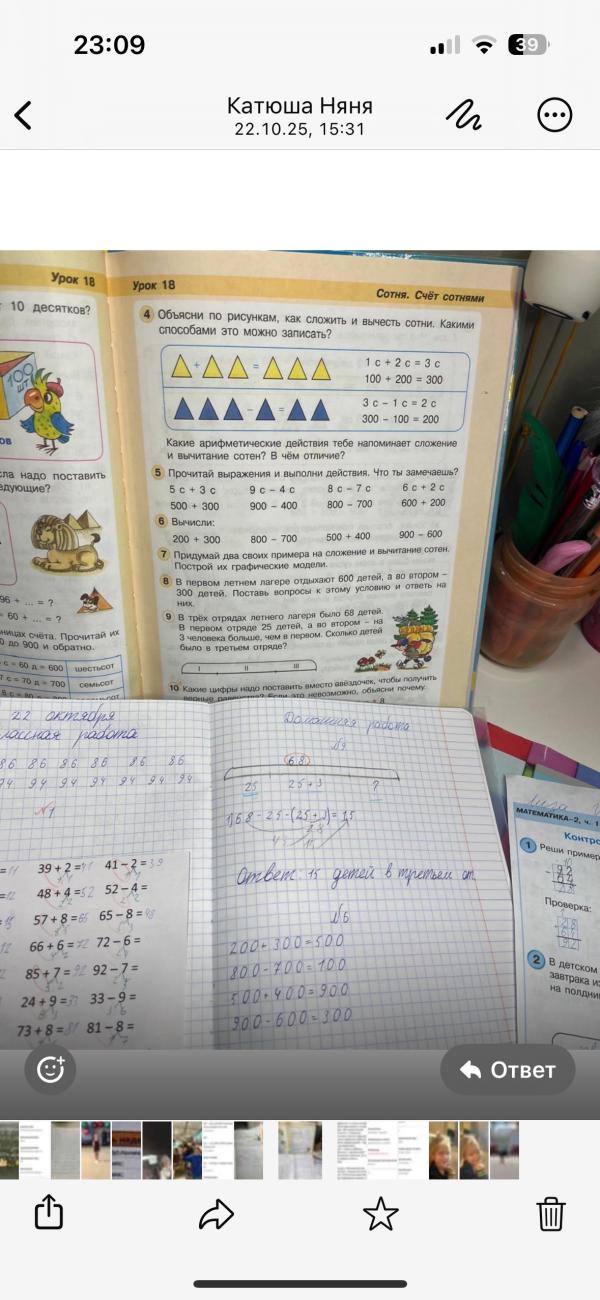 23:09
39
Катюша Няня
22.10.25, 15:31
Урок 18
10 десятков?
100
шт
ла надо поставить
дующие?
96 + ... = ?
60 + ... = ?
ницах счёта. Прочитай их
до 900 и обратно.
с = 60 д = 600 шестьсот
7 с = 70 д = 700 семьсот
Урок 18
Сотня. Счёт сотнями
4 Объясни по рисункам, как сложить и вычесть сотни. Какими
способами это можно записать?
+ = 1 с + 2 с = 3 с
100 + 200 = 300
− = 3 с − 1 с = 2 с
300 − 100 = 200
Какие арифметические действия тебе напоминает сложение
и вычитание сотен? В чём отличие?
5 Прочитай выражения и выполни действия. Что ты замечаешь?
5 с + 3 с 9 с − 4 с 8 с − 7 с 6 с + 2 с
500 + 300 900 − 400 800 − 700 600 + 200
6 Вычисли:
200 + 300 800 − 700 500 + 400 900 − 600
7 Придумай два своих примера на сложение и вычитание сотен.
Построй их графические модели.
8 В первом летнем лагере отдыхают 600 детей, а во втором –
300 детей. Поставь вопросы к этому условию и ответь на
них.
9 В трёх отрядах летнего лагеря было 68 детей.
В первом отряде 25 детей, а во втором – на
3 человека больше, чем в первом. Сколько детей
было в третьем отряде?
I II III
10 Какие цифры надо поставить вместо звёздочек, чтобы получить
верные равенства? Если это невозможно, объясни почему.
22 октября
лассная работа
86 86 86 86 86 86
94 94 94 94 94 94 94
№1
39 + 2 = 41 41 − 2 = 39
48 + 4 = 52 52 − 4 =
57 + 8 = 65 65 − 8 =
66 + 6 = 72 72 − 6 =
85 + 7 = 92 92 − 7 =
24 + 9 = 33 − 9 =
73 + 8 = 81 81 − 8 =
Домашняя работа
№9
68
25 25+3 ?
1) 68-25-(25+3)=15
Ответ: 15 детей в третьем от
№6
200+300=500
800-700=100
500+400=900
900-600=300
МАТЕМАТИКА–2, ч. 1
Контро
1 Реши пример
Проверка:
2 В детском
завтрака из
на полдни
Ответ